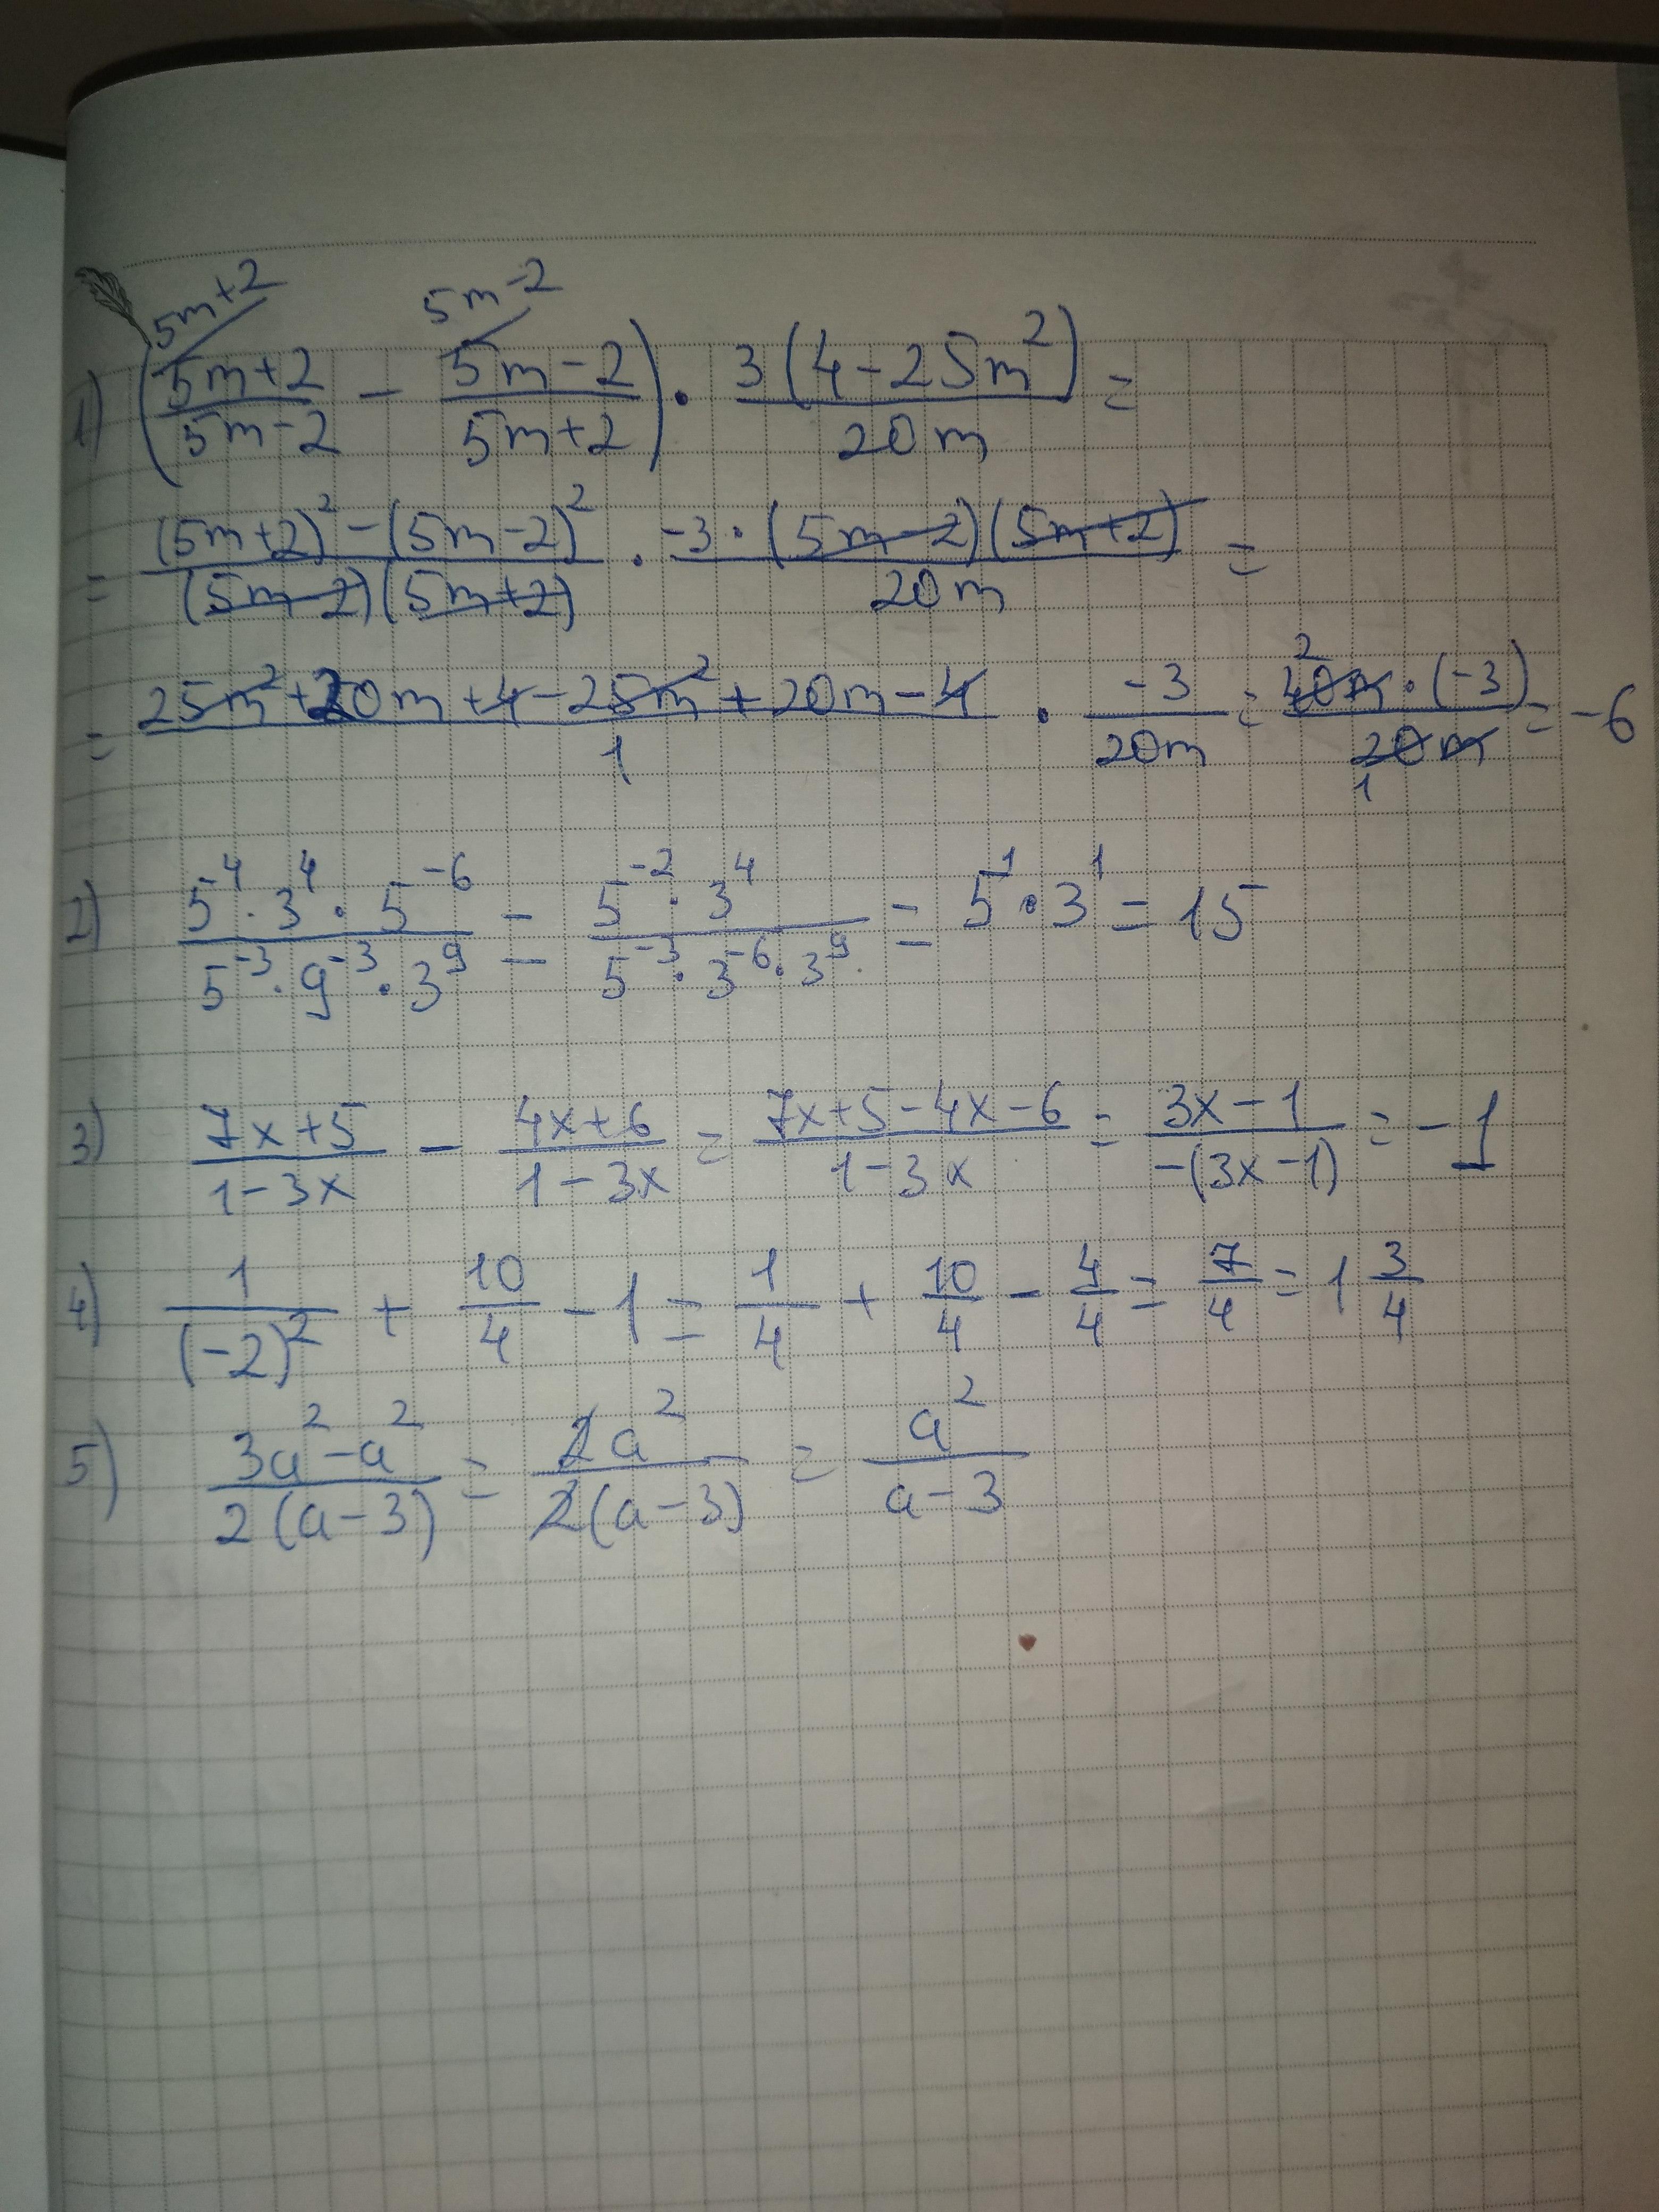 5m+2 5m-2
1) (5m+2/5m-2 - 5m-2/5m+2) · 3(4-25m²)/20m =
= (5m+2)²-(5m-2)²/(5m-2)(5m+2) · -3·(5m-2)(5m+2)/20m =
= 25m²+20m+4-25m²+20m-4/1 · -3/20m = 2 40m·(-3)/20m 1 = -6
2) 5⁻⁴·3⁴·5⁻⁶/5⁻³·9⁻³·3⁹ = 5⁻²·3⁴/5⁻³·3⁻⁶·3⁹ = 5¹·3¹ = 15
3) 7x+5/1-3x - 4x+6/1-3x = 7x+5-4x-6/1-3x = 3x-1/-(3x-1) = -1
4) 1/(-2)² + 10/4 - 1 = 1/4 + 10/4 - 4/4 = 7/4 = 1 3/4
5) 3a²-a²/2(a-3) = 2a²/2(a-3) = a²/a-3